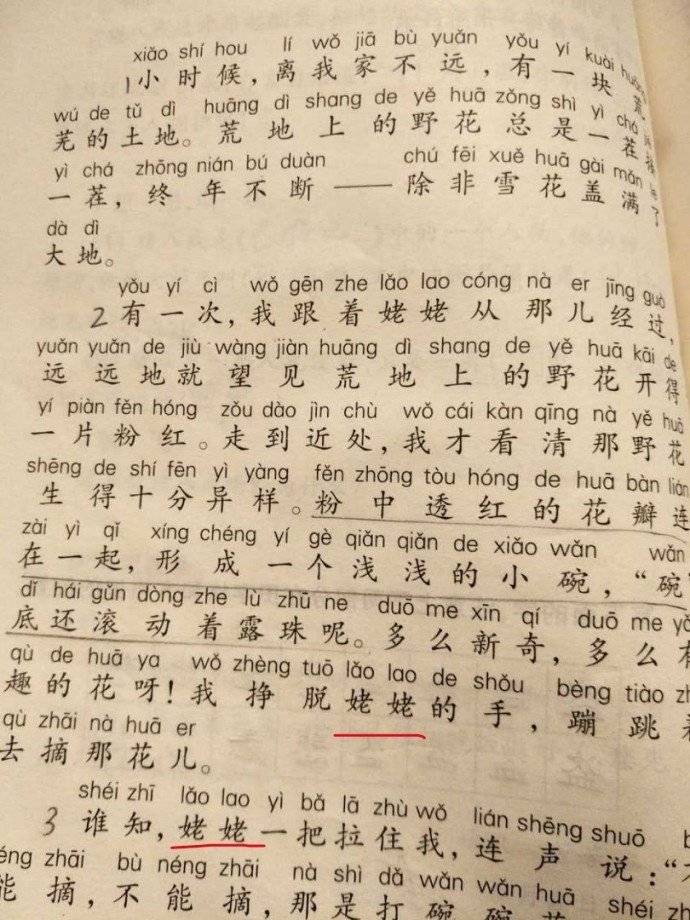 xiǎo shí hou lí wǒ jiā bù yuǎn yǒu yí kuài huāng
1小时候，离我家不远，有一块荒
wú de tǔ dì huāng dì shang de yě huā zǒng shì yì chá
芜的土地。荒地上的野花总是一茬接
yì chá zhōng nián bú duàn chú fēi xuě huā gài mǎn le
一茬，终年不断——除非雪花盖满了
dà dì
大地。
yǒu yí cì wǒ gēn zhe lǎo lao cóng nà er jīng guò
2有一次，我跟着姥姥从那儿经过，
yuǎn yuǎn de jiù wàng jiàn huāng dì shang de yě huā kāi de
远远地就望见荒地上的野花开得
yí piàn fěn hóng zǒu dào jìn chù wǒ cái kàn qīng nà yě huā
一片粉红。走到近处，我才看清那野花
shēng de shí fēn yì yàng fěn zhōng tòu hóng de huā bàn lián
生得十分异样。粉中透红的花瓣连
zài yì qǐ xíng chéng yí gè qiǎn qiǎn de xiǎo wǎn wǎn
在一起，形成一个浅浅的小碗，“碗”
dǐ hái gǔn dòng zhe lù zhū ne duō me xīn qí duō me yǒ
底还滚动着露珠呢。多么新奇，多么有
qù de huā ya wǒ zhèng tuō lǎo lao de shǒu bèng tiào zh
趣的花呀！我挣脱姥姥的手，蹦跳着
qù zhāi nà huā er
去摘那花儿。
shéi zhī lǎo lao yì bǎ lā zhù wǒ lián shēng shuō b
3谁知，姥姥一把拉住我，连声说：“不
éng zhāi bù néng zhāi nà shì dǎ wǎn wǎn huā
能摘，不能摘，那是打碗碗花